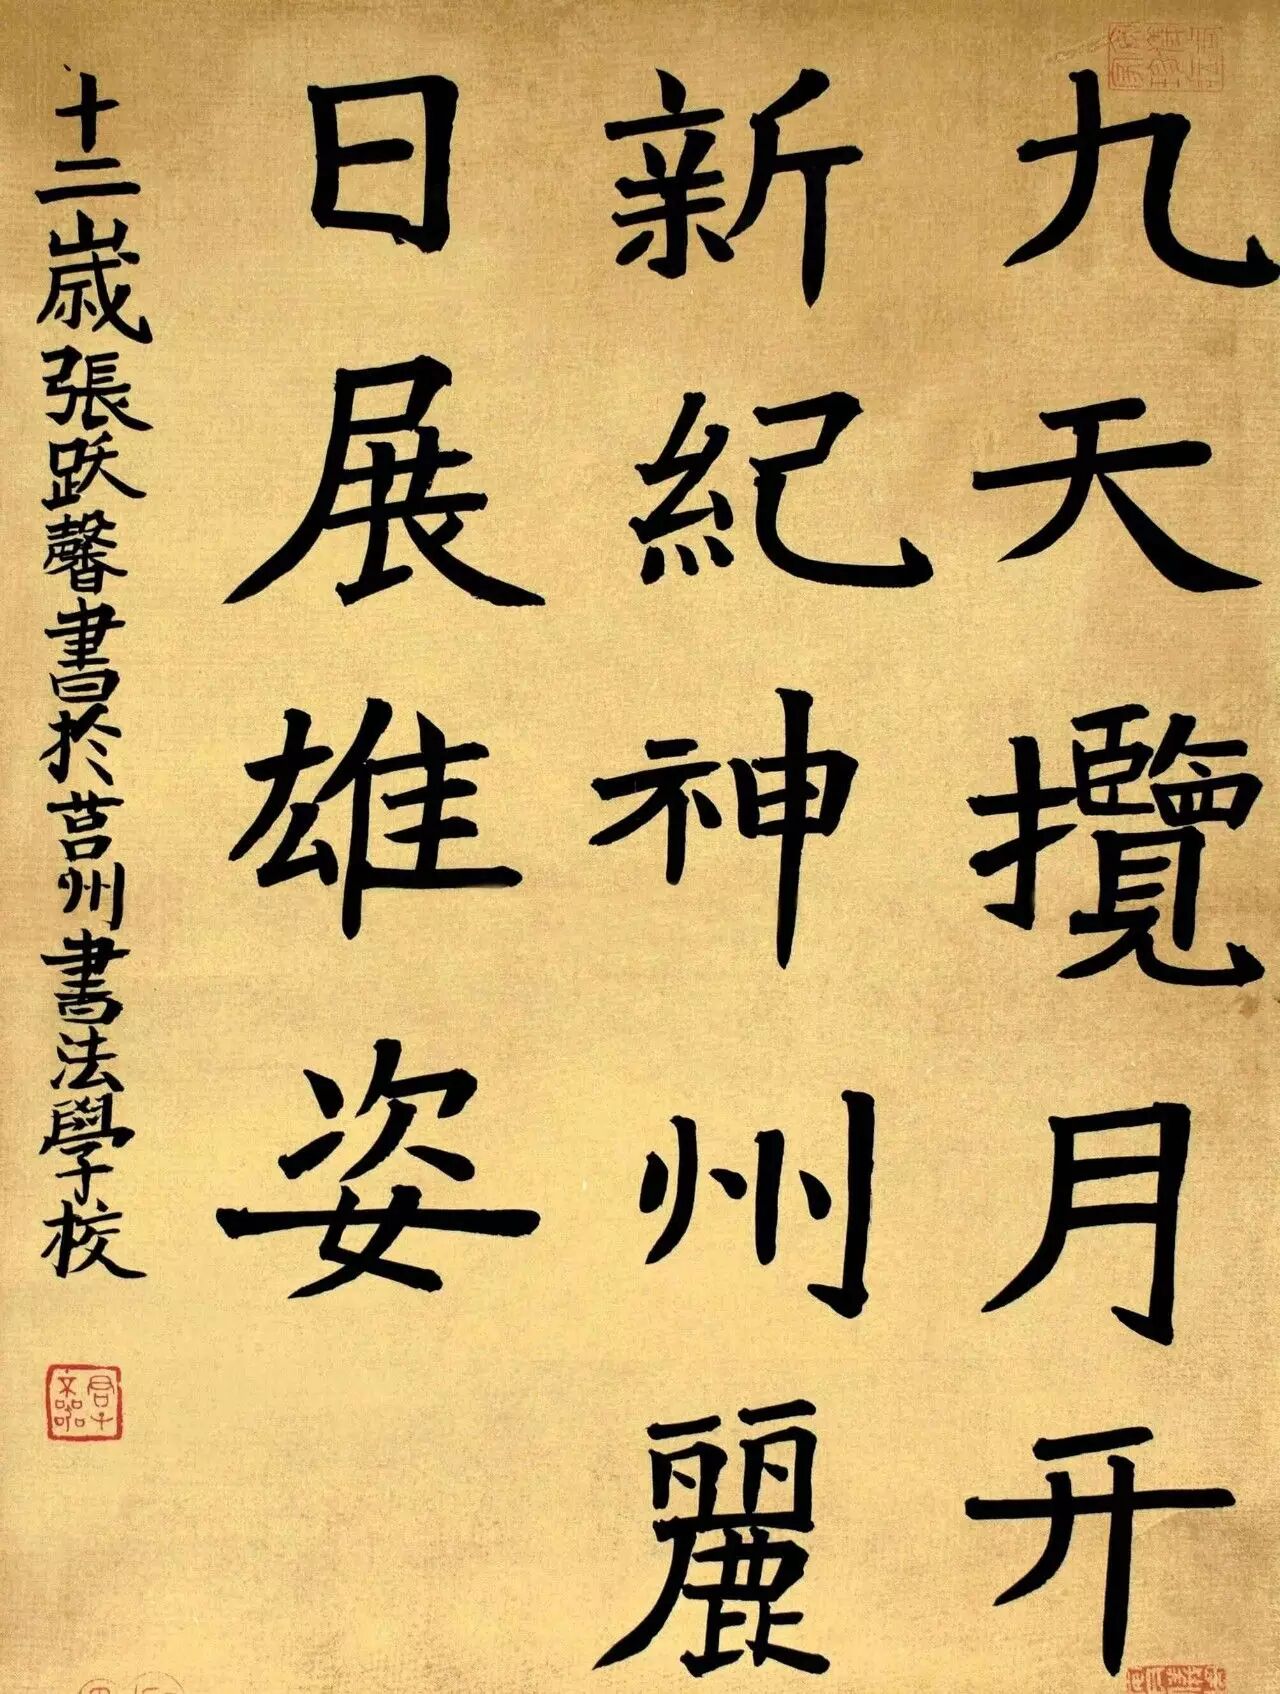 九天攬月开
新紀神州麗
日展雄姿
十二歲張跃馨書於莒州書法學校